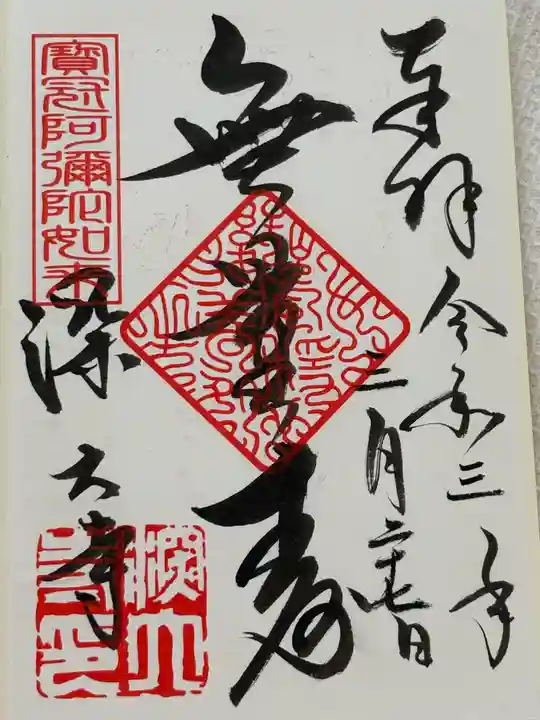 奉拝
令和三年
三月二十七日
無量寿
寳冠阿彌陀如来
深大寺
深大寺印